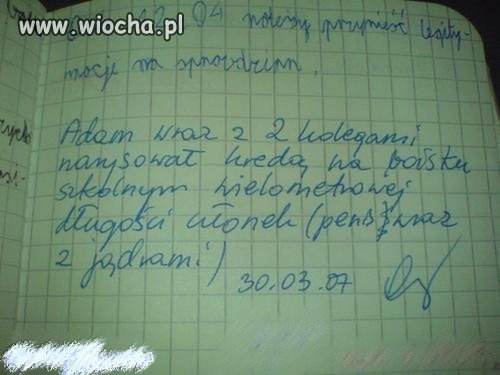 www.wiocha.pl
12 04 należy przynieść legity-
mację na sprawdzian.
Adam wraz z 2 kolegami
narysował kredą na boisku
szkolnym wielometrowej
długości członek (penis wraz
z jądrami)
30.03.07